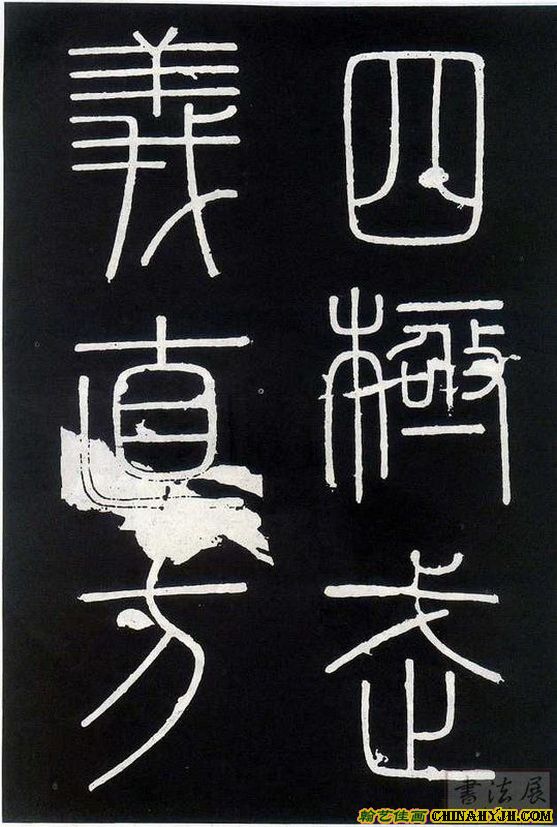 四極武
義直方
書法展
翰艺佳画 CHINAHYJH.COM